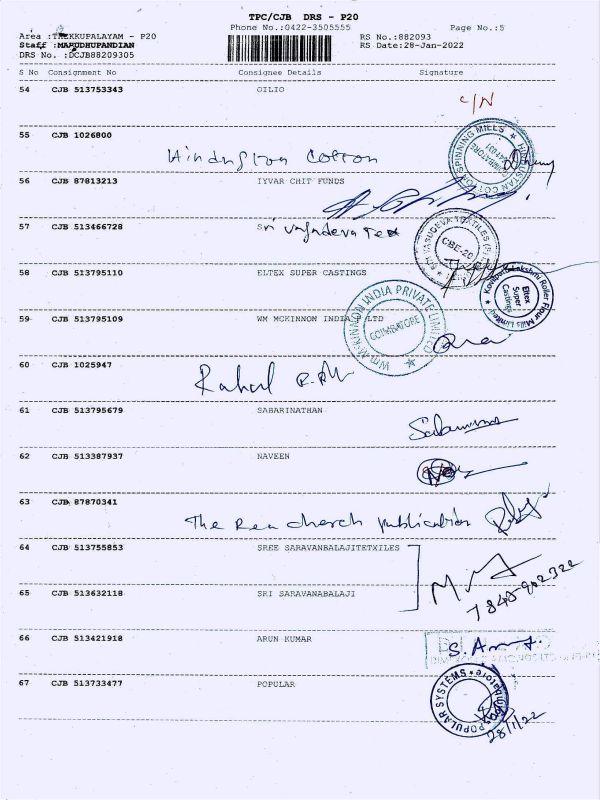 TPC/CJB DRS - P20
Area :THEKKUPALAYAM - P20 Phone No.:0422-3505555 Page No.:5
Staff :MARUDHUPANDIAN RS No.:882093
DRS No. :DCJB88209305 RS Date:28-Jan-2022
S No Consignment No Consignee Details Signature
54 CJB 513753343 OILIO
C/N
55 CJB 1026800
Hindustan Cotton
HINDUSTAN COTTON SPINNING MILLS
COIMBATORE
56 CJB 87813213 IYVAR CHIT FUNDS
57 CJB 513466728 Sri Vasudeva Tex
SRI VASUDEVA TEXTILES
CBE-20
58 CJB 513795110 ELTEX SUPER CASTINGS
Eltex Super Castings
Lakshmi Roller Flour Mills Limited
59 CJB 513795109 WM MCKINNON INDIA LTD
Wm McKINNON INDIA PRIVATE LIMITED
COIMBATORE
60 CJB 1025947
Rahul
61 CJB 513795679 SABARINATHAN
62 CJB 513387937 NAVEEN
63 CJB 87870341
The Rea Church Publication
64 CJB 513755853 SREE SARAVANBALAJITETXILES
65 CJB 513632118 SRI SARAVANABALAJI
66 CJB 513421918 ARUN KUMAR
67 CJB 513733477 POPULAR
POPULAR SYSTEMS
Coimbatore
28/1/22